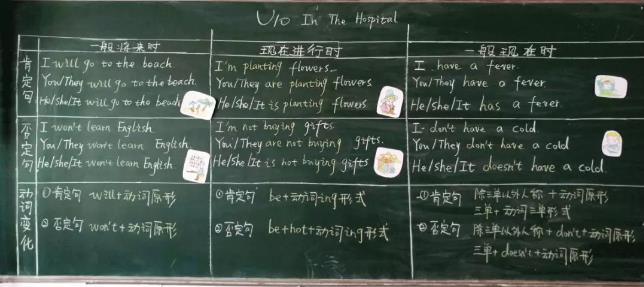 U10 In The Hospital
一般将来时
现在进行时
一般现在时
肯定句
I will go to the beach
You/They will go to the beach.
He/she/It will go to the beach
I'm planting flowers.
You/They are planting flowers
He/she/It is planting flowers
I have a fever.
You/They have a fever.
He/She/It has a fever
否定句
I won't learn English
You/They won't learn English.
He/She/It won't learn English
I'm not buying gifts.
You/They are not buying gifts.
He/she/It is not buying gifts
I don't have a cold
You/They don't have a cold.
He/She/It doesn't have a cold.
动词变化
①肯定句 will+动词原形
②否定句 won't+动词原形
①肯定句 be+动词ing形式
②否定句 be+not+动词ing形式
①肯定句 除三单以外人称+动词原形
三单+动词三单形式
②否定句 除三单以外人称+don't+动词原形
三单+doesn't+动词原形